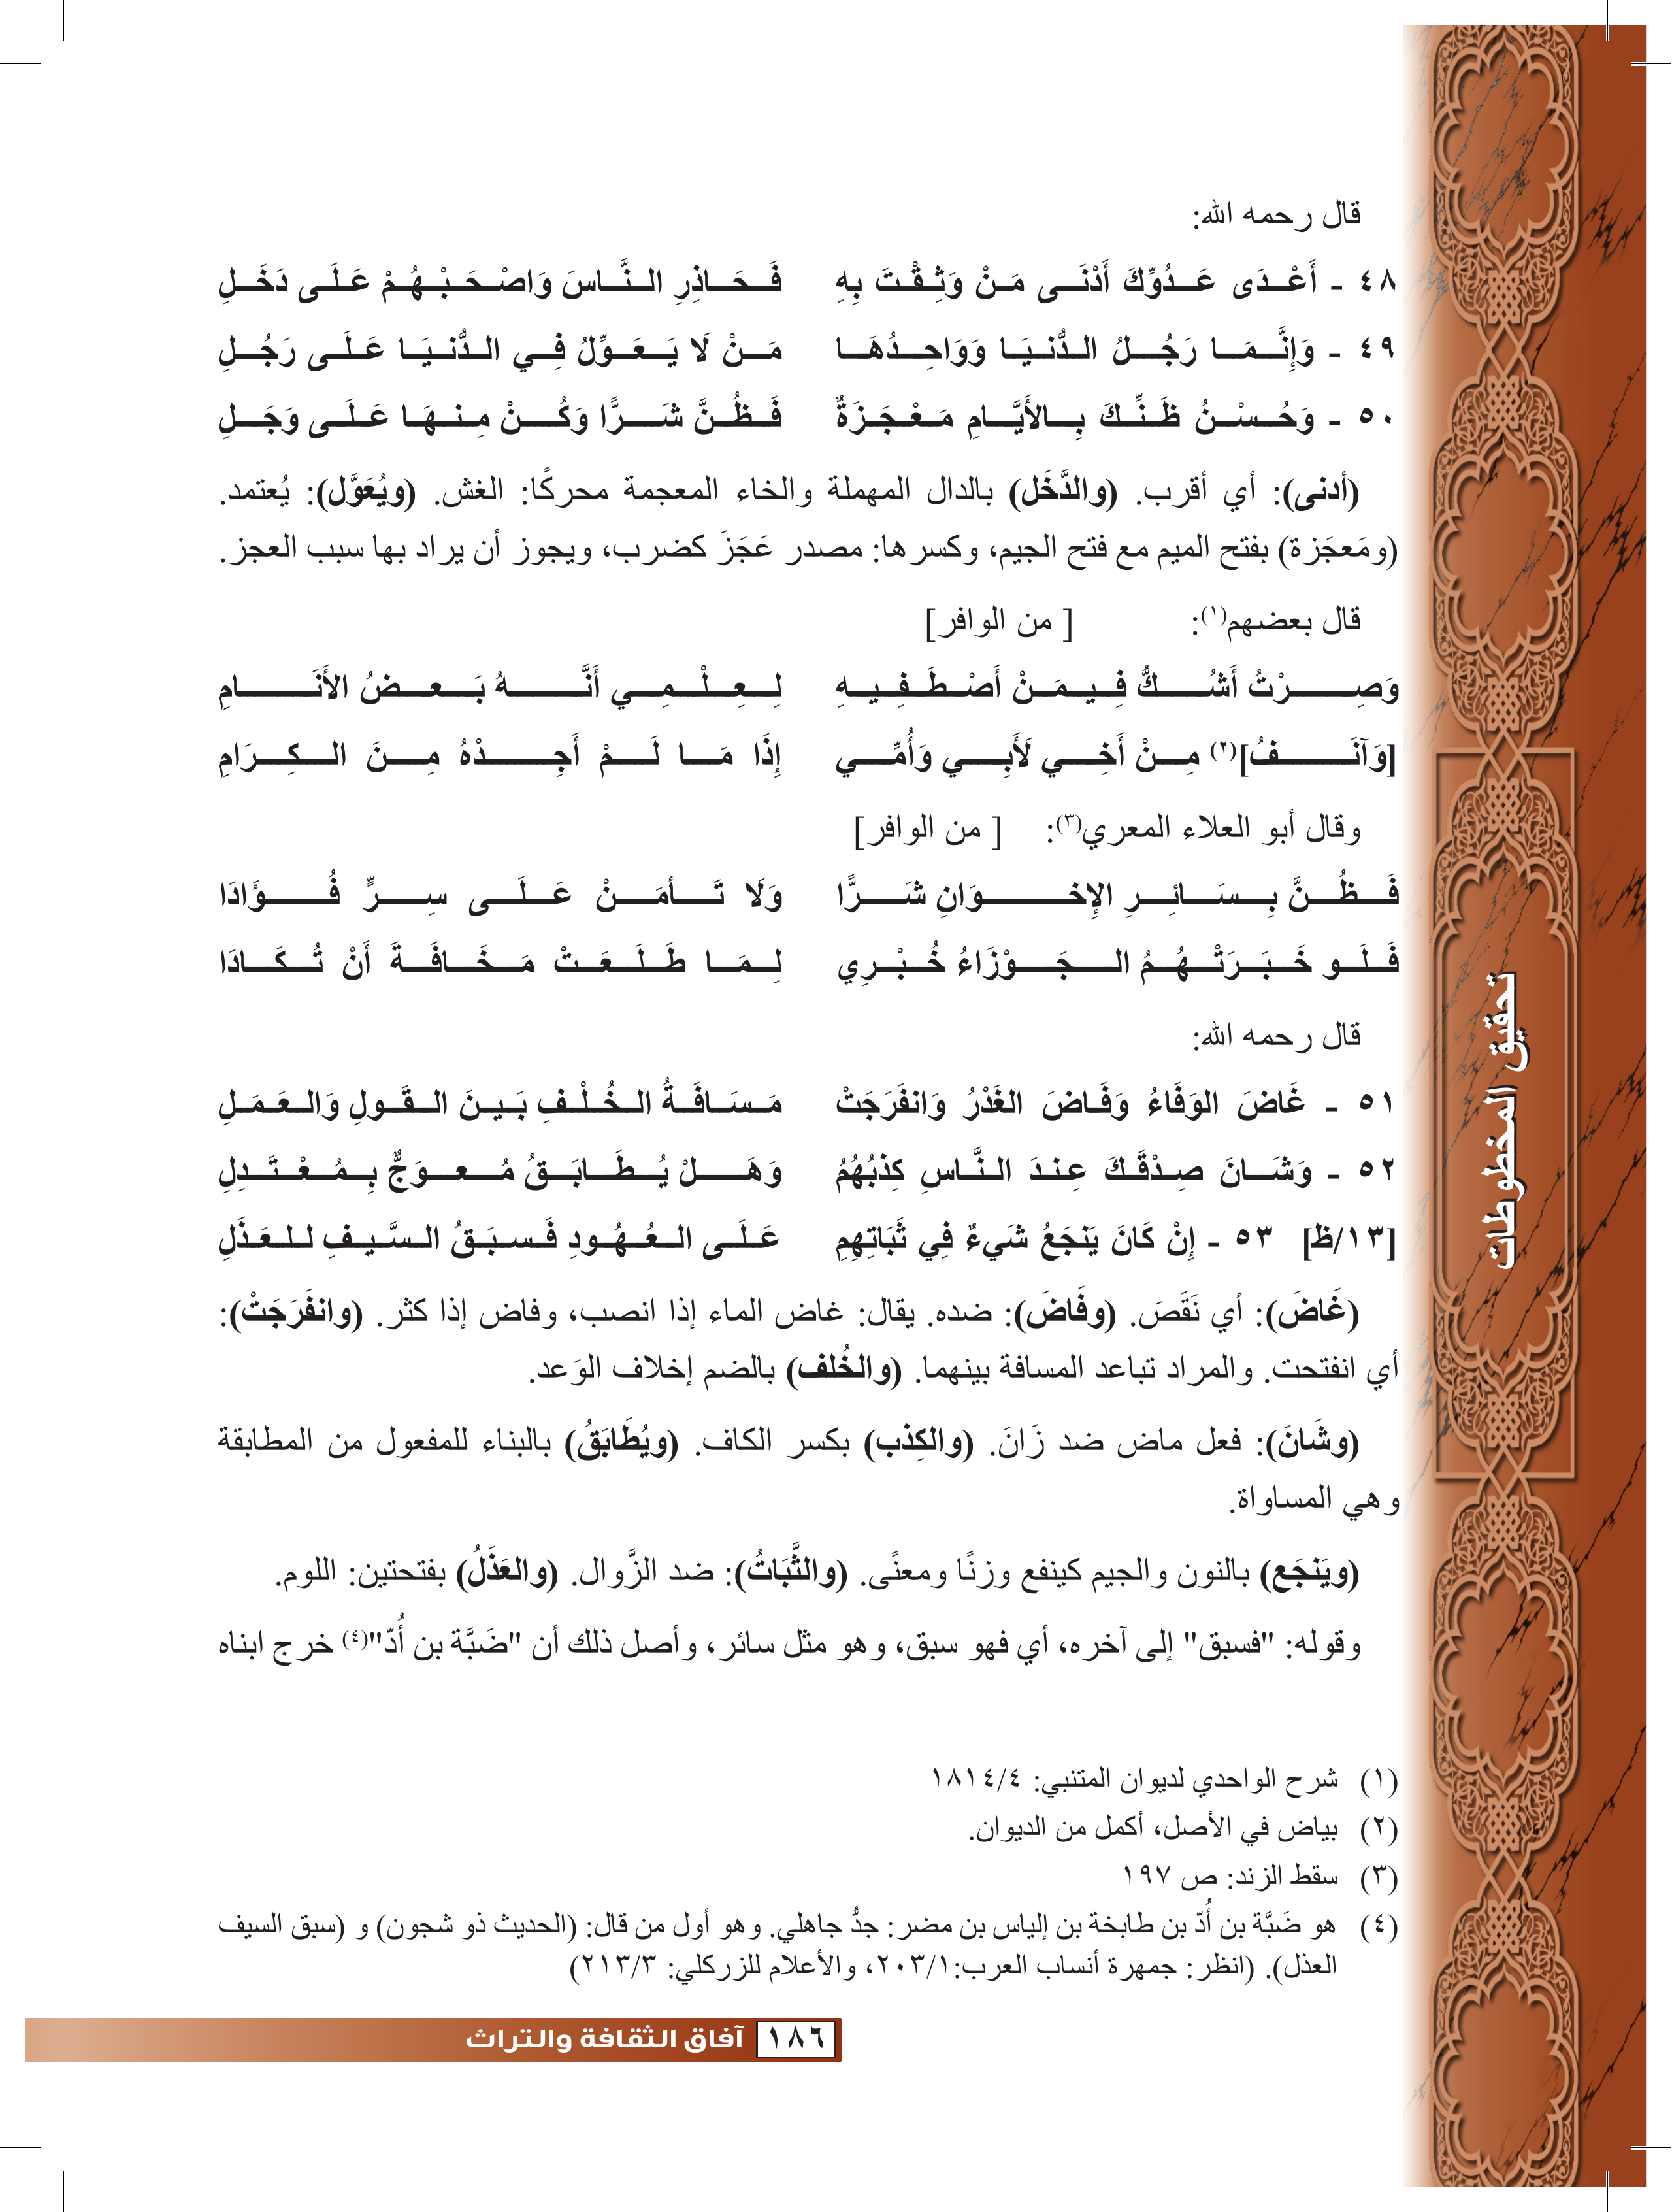 قال رحمه الله:
٤٨ - أَعْدَى عَدُوِّكَ أَدْنَى مَنْ وَثِقْتَ بِهِ فَحَاذِرِ النَّاسَ وَاصْحَبْهُمْ عَلَى دَخَلِ
٤٩ - وَإِنَّمَا رَجُلُ الدُّنيَا وَوَاحِدُهَا مَنْ لَا يَعَوِّلُ فِي الدُّنيَا عَلَى رَجُلِ
٥٠ - وَحُسْنُ ظَنِّكَ بِالأَيَّامِ مَعْجَزَةٌ فَظُنَّ شَرًّا وَكُنْ مِنهَا عَلَى وَجَلِ
(أدنى): أي أقرب. (والدَّخَل) بالدال المهملة والخاء المعجمة محركًا: الغش. (ويُعَوَّل): يُعتمد.
(ومَعجَزة) بفتح الميم مع فتح الجيم، وكسرها: مصدر عَجَزَ كضرب، ويجوز أن يراد بها سبب العجز.
قال بعضهم(١): [ من الوافر]
وَصِرْتُ أَشُكُّ فِيمَنْ أَصْطَفِيهِ لِعِلْمِي أَنَّهُ بَعضُ الأَنَامِ
[وَآنَفُ](٢) مِنْ أَخِي لَأَبِي وَأُمِّي إِذَا مَا لَمْ أَجِدْهُ مِنَ الكِرَامِ
وقال أبو العلاء المعري(٣): [ من الوافر]
فَظُنَّ بِسَائِرِ الإِخوَانِ شَرًّا وَلَا تَأمَنْ عَلَى سِرٍّ فُؤَادَا
فَلَو خَبَرَتْهُمُ الجَوْزَاءُ خُبْرِي لِمَا طَلَعَتْ مَخَافَةَ أَنْ تُكَادَا
قال رحمه الله:
٥١ - غَاضَ الوَفَاءُ وَفَاضَ الغَدْرُ وَانفَرَجَتْ مَسَافَةُ الخُلْفِ بَينَ القَولِ وَالعَمَلِ
٥٢ - وَشَانَ صِدْقَكَ عِندَ النَّاسِ كِذبُهُمُ وَهَلْ يُطَابَقُ مُعوَجٌّ بِمُعْتَدِلِ
[١٣/ظ] ٥٣ - إِنْ كَانَ يَنجَعُ شَيءٌ فِي ثَبَاتِهِمِ عَلَى العُهُودِ فَسبَقُ السَّيفِ للعَذَلِ
(غَاضَ): أي نَقَصَ. (وفَاضَ): ضده. يقال: غاض الماء إذا انصب، وفاض إذا كثر. (وانفَرَجَتْ):
أي انفتحت. والمراد تباعد المسافة بينهما. (والخُلف) بالضم إخلاف الوَعد.
(وشَانَ): فعل ماض ضد زَانَ. (والكِذب) بكسر الكاف. (ويُطَابَقُ) بالبناء للمفعول من المطابقة
وهي المساواة.
(ويَنجَع) بالنون والجيم كينفع وزنًا ومعنًى. (والثَّبَاتُ): ضد الزَّوال. (والعَذَلُ) بفتحتين: اللوم.
وقوله: "فسبق" إلى آخره، أي فهو سبق، وهو مثل سائر، وأصل ذلك أن "ضَبَّة بن أُدّ"(٤) خرج ابناه
(١) شرح الواحدي لديوان المتنبي: ١٨١٤/٤
(٢) بياض في الأصل، أكمل من الديوان.
(٣) سقط الزند: ص ١٩٧
(٤) هو ضَبَّة بن أُدّ بن طابخة بن إلياس بن مضر: جدُّ جاهلي. وهو أول من قال: (الحديث ذو شجون) و (سبق السيف
العذل). (انظر: جمهرة أنساب العرب:٢٠٣/١، والأعلام للزركلي: ٢١٣/٣)
١٨٦ آفاق الثقافة والتراث
تحقيق المخطوطات